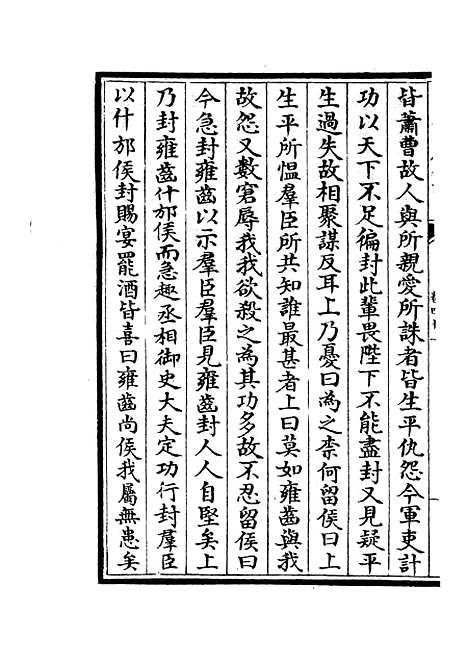 皆蕭曹故人與所親愛所誅者皆生平仇怨今軍吏計
功以天下不足徧封此輩畏陛下不能盡封又見疑平
生過失故相聚謀反耳上乃憂曰為之柰何留侯曰上
生平所愠羣臣所共知誰最甚者上曰莫如雍齒與我
故怨又數窘辱我我欲殺之為其功多故不忍留侯曰
今急封雍齒以示羣臣羣臣見雍齒封人人自堅矣上
乃封雍齒什邡侯而急趣丞相御史大夫定功行封羣臣
以什邡侯封賜宴罷酒皆喜曰雍齒尚侯我屬無患矣